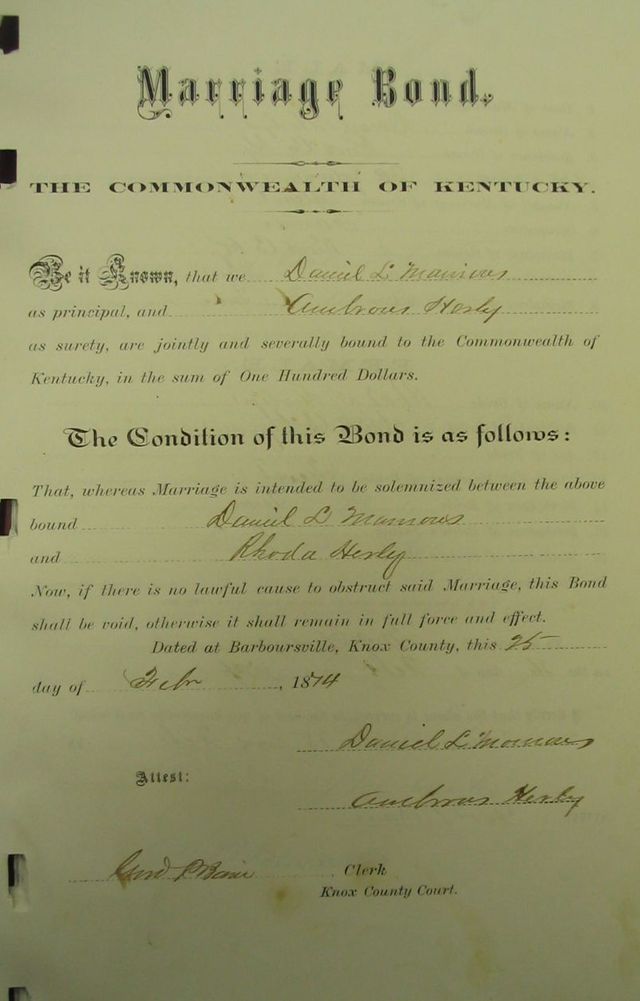 Marriage Bond.
THE COMMONWEALTH OF KENTUCKY.
Be it Known, that we Daniel L
as principal, and Ambrous Hesly
as surety, are jointly and severally bound to the Commonwealth of
Kentucky, in the sum of One Hundred Dollars.
The Condition of this Bond is as follows:
That, whereas Marriage is intended to be solemnized between the above
bound Daniel L
and Rhoda Hesly
Now, if there is no lawful cause to obstruct said Marriage, this Bond
shall be void, otherwise it shall remain in full force and effect.
Dated at Barboursville, Knox County, this 25
day of Feb , 1874
Daniel L
Attest:
Ambrous Hesly
Clerk
Knox County Court.